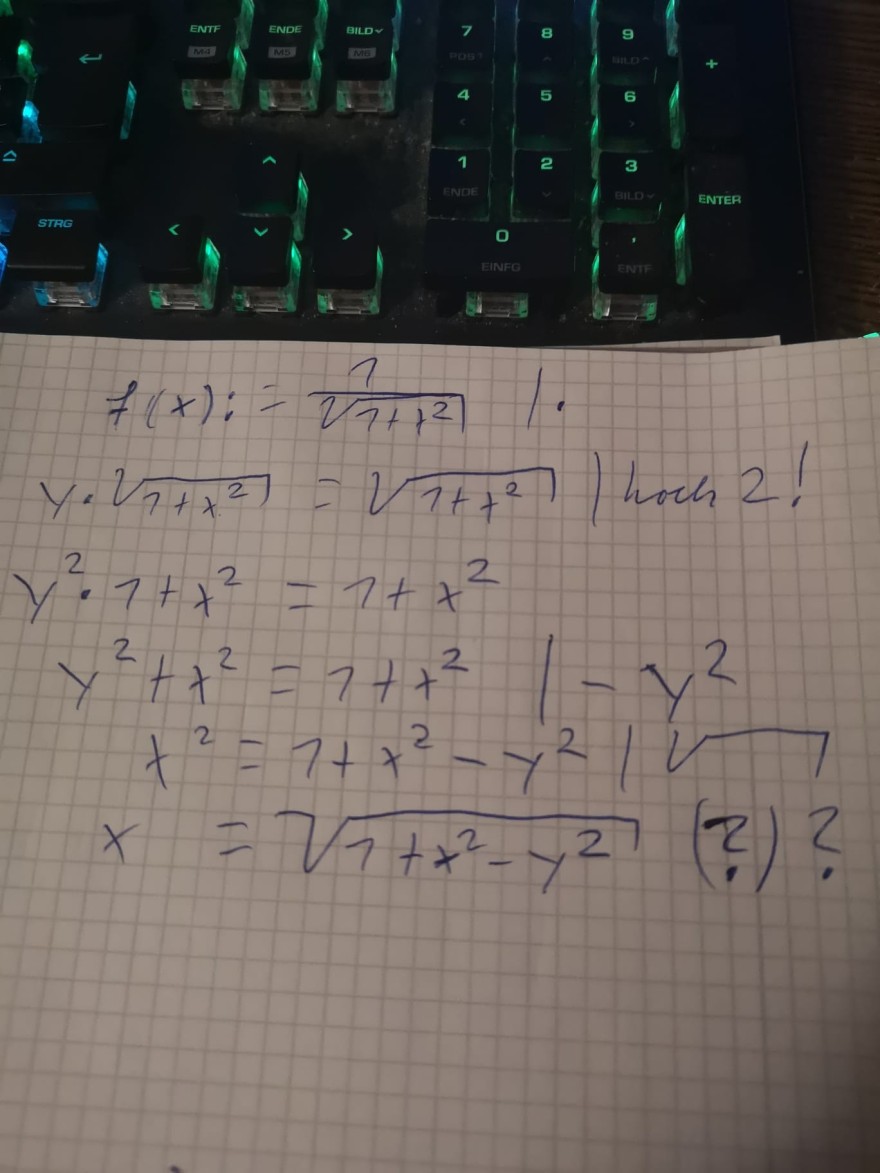 ENTF ENDE BILD
M4 M5 M6
7 8 9
POS1 BILD
+
4 5 6
1 2 3
ENDE BILD
ENTER
STRG
0 ,
EINFG ENTF
f(x) := 1/√(1+x²) | ·
y · √(1+x²) = √(1+x²) | hoch 2!
y² · 1 + x² = 1 + x²
y² + x² = 1 + x² | - y²
x² = 1 + x² - y² | √
x = √(1+x²-y²) (?) ?